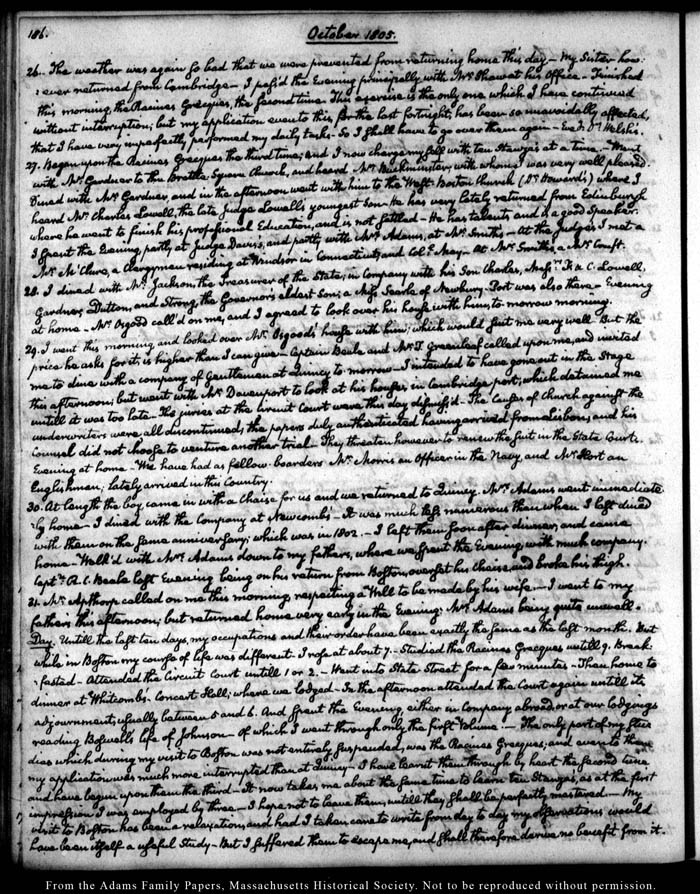 186.
October 1805.
26. The weather was again so bad that we were prevented from returning home this day — My Sister how-
:ever returned from Cambridge — I pass'd the Evening principally with Mr. Shaw at his Office — Finished
this morning the Racines Grecques, the second time. This exercise is the only one which I have continued
without interruption; but my application even to this, for the last fortnight, has been so unavoidably affected,
that I have very imperfectly performed my daily tasks. So I shall have to go over them again — Eve. at Dr. Welsh's.
27. Began upon the Racines Grecques the third time; and I now charge myself with ten Stanza's at a time. — Went
with Mr. Gardner to the Brattle Square Church, and heard Mr. Buckminster, with whom I was very well pleased.
Dined with Mr. Gardner, and in the afternoon went with him to the West-Boston Church (Dr. Howard's) where I
heard Mr. Charles Lowell, the late Judge Lowell's youngest Son. He has very lately returned from Edinburgh
where he went to finish his professional Education, and is not settled — He has talents, and is a good Speaker.
I spent the Evening partly at Judge Davis's, and partly with Mrs. Adams, at Mr. Smith's — At the Judge's I met a
Mr. McClure, a Clergyman residing at Windsor in Connecticut, and Coll. May — At Mr. Smith's, a Mr. Cruft.
28. I dined with Mr. Jackson, the Treasurer of the State, in Company with his Son Charles, Messrs. F. & C. Lowell,
Gardner, Dutton, and Strong the Governor's eldest Son; a Miss Searle of Newbury-Port was also there — Evening
at home — Mr. Osgood call'd on me, and I agreed to look over his house with him, to-morrow morning.
29. I went this morning and looked over Mr. Osgood's house with him; which would suit me very well. But the
price he asks for it, is higher than I can give — Captain Beale and Mr. T. Greenleaf called upon me, and invited
me to dine with a company of Gentlemen at Quincy to-morrow — I intended to have gone out in the Stage
this afternoon; but went with Mr. Davenport to look at his houses in Cambridge port; which detained me
untill it was too late — The juries at the Circuit Court were this day dismiss'd — The Causes of Church against the
underwriters were all discontinued; the papers duly authenticated having arrived from Lisbon; and his
Counsel did not choose to venture another trial — They threaten however to renew the suit in the State Courts.
Evening at home. We have had as fellow-boarders Mr. Morris an Officer in the Navy, and Mr. Hort an
Englishman; lately arrived in this Country.
30. At length the boy came in with a Chaise for us and we returned to Quincy. Mrs. Adams went immediate-
:ly home — I dined with the Company at Newcomb's — It was much less numerous than when I last dined
with them on the same anniversary; which was in 1802. — I left them soon after dinner, and came
home. — Walk'd with Mrs. Adams down to my father's, where we spent the Evening, with much company.
Captn. R. C. Beale last Evening being on his return from Boston, overset his Chaise, and broke his thigh.
31. Mr. Apthorp called on me this morning respecting a Will to be made by his wife. — I went to my
father's this afternoon; but returned home very early in the Evening; Mrs. Adams being quite unwell.
Day. Untill the last ten days, my occupations and their order have been exactly the same as the last month. But
while in Boston my course of life was different. I rose at about 7. — Studied the Racines Grecques untill 9. Break-
:fasted — Attended the Circuit Court untill 1 or 2. — Went into State Street for a few minutes — Then home to
dinner at Whitcomb's. Concert Hall; where we lodged — In the afternoon attended the Court again untill its
adjournment; usually between 5 and 6. And spent the Evening, either in Company abroad, or at our lodgings
reading Boswell's life of Johnson — of which I went through only the first Volume. — The only part of my stu-
dies which during my visit to Boston was not entirely suspended, was the Racines Grecques; and even to them
my application was much more interrupted than at Quincy — I have learnt them through by heart the second time,
and have begun upon them the third — It now takes me about the same time to learn ten Stanzas, as at the first
impression I was employed by three — I hope not to leave them, untill they shall be perfectly mastered. — My
visit to Boston has been a relaxation, and had I taken care to write from day to day my observations would
have been itself a useful Study — But I suffered them to escape me, and shall therefore derive no benefit from it.
From the Adams Family Papers, Massachusetts Historical Society. Not to be reproduced without permission.